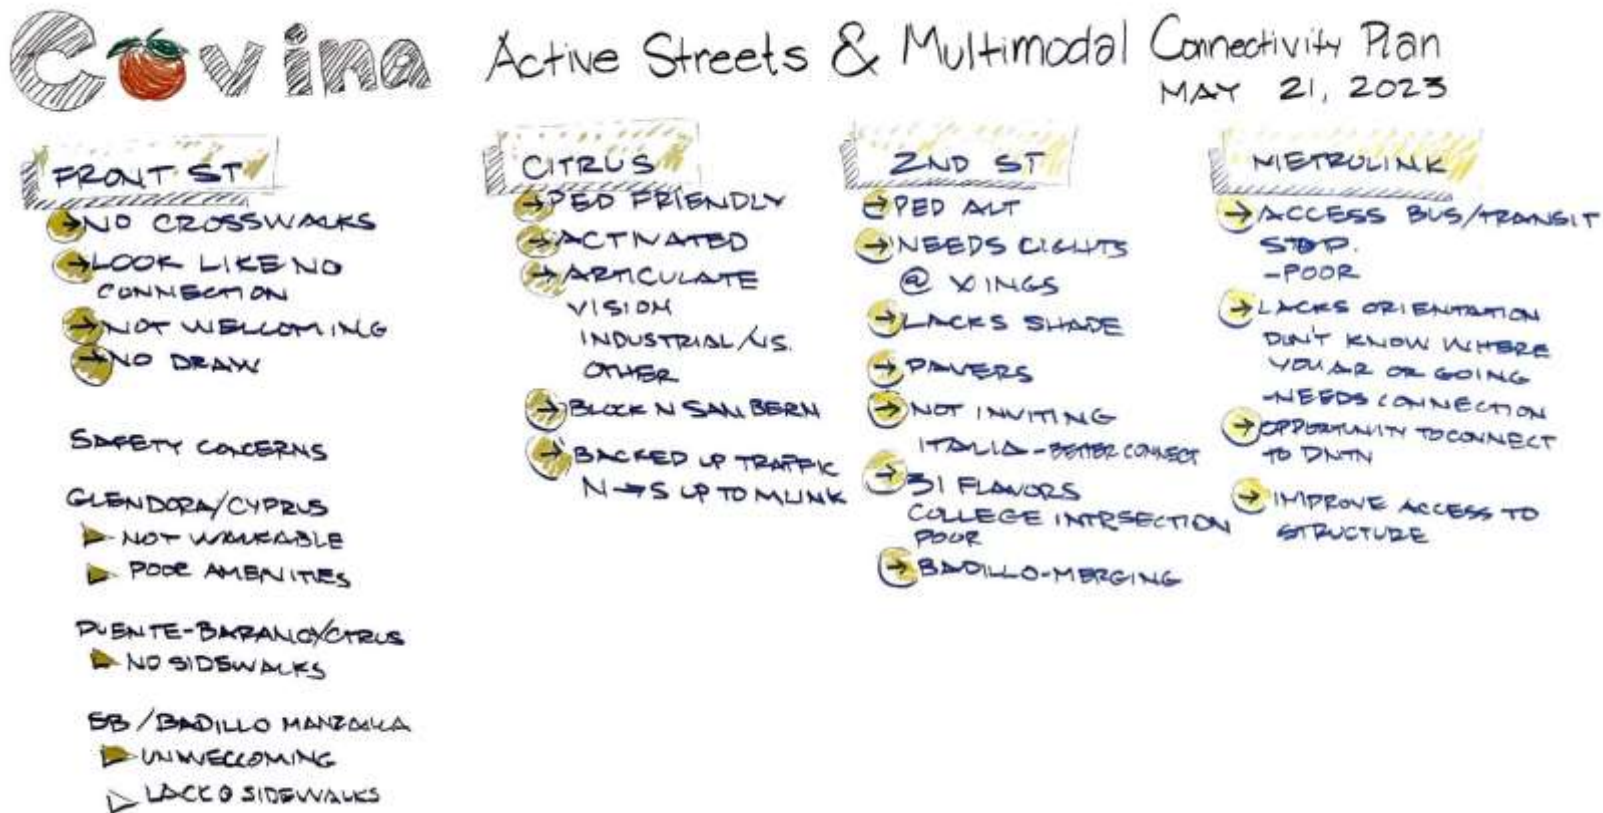 Covina
Active Streets & Multimodal Connectivity Plan
MAY 21, 2023
FRONT ST
NO CROSSWALKS
LOOK LIKE NO
CONNECTION
NOT WELCOMING
NO DRAW
SAFETY CONCERNS
GLENDORA/CYPRUS
NOT WALKABLE
POOR AMENITIES
PUENTE-BARANCA/CITRUS
NO SIDEWALKS
SB/BADILLO
UNWELCOMING
LACK O SIDEWALKS
CITRUS
PED FRIENDLY
ACTIVATED
ARTICULATE
VISION
INDUSTRIAL/VS.
OTHER
BLOCK N SAN BERN
BACKED UP TRAFFIC
N→S UP TO MLINK
2ND ST
PED ALT
NEEDS LIGHTS
@ XINGS
LACKS SHADE
PAVERS
NOT INVITING
ITALIA-BETTER CONNECT
31 FLAVORS
COLLEGE INTRSECTION
POOR
BADILLO-MERGING
METROLINK
ACCESS BUS/TRANSIT
STOP.
-POOR
LACKS ORIENTATION
DON'T KNOW WHERE
YOU AR OR GOING
-NEEDS CONNECTION
OPPORTUNITY TO CONNECT
TO DNTN
IMPROVE ACCESS TO
STRUCTURE